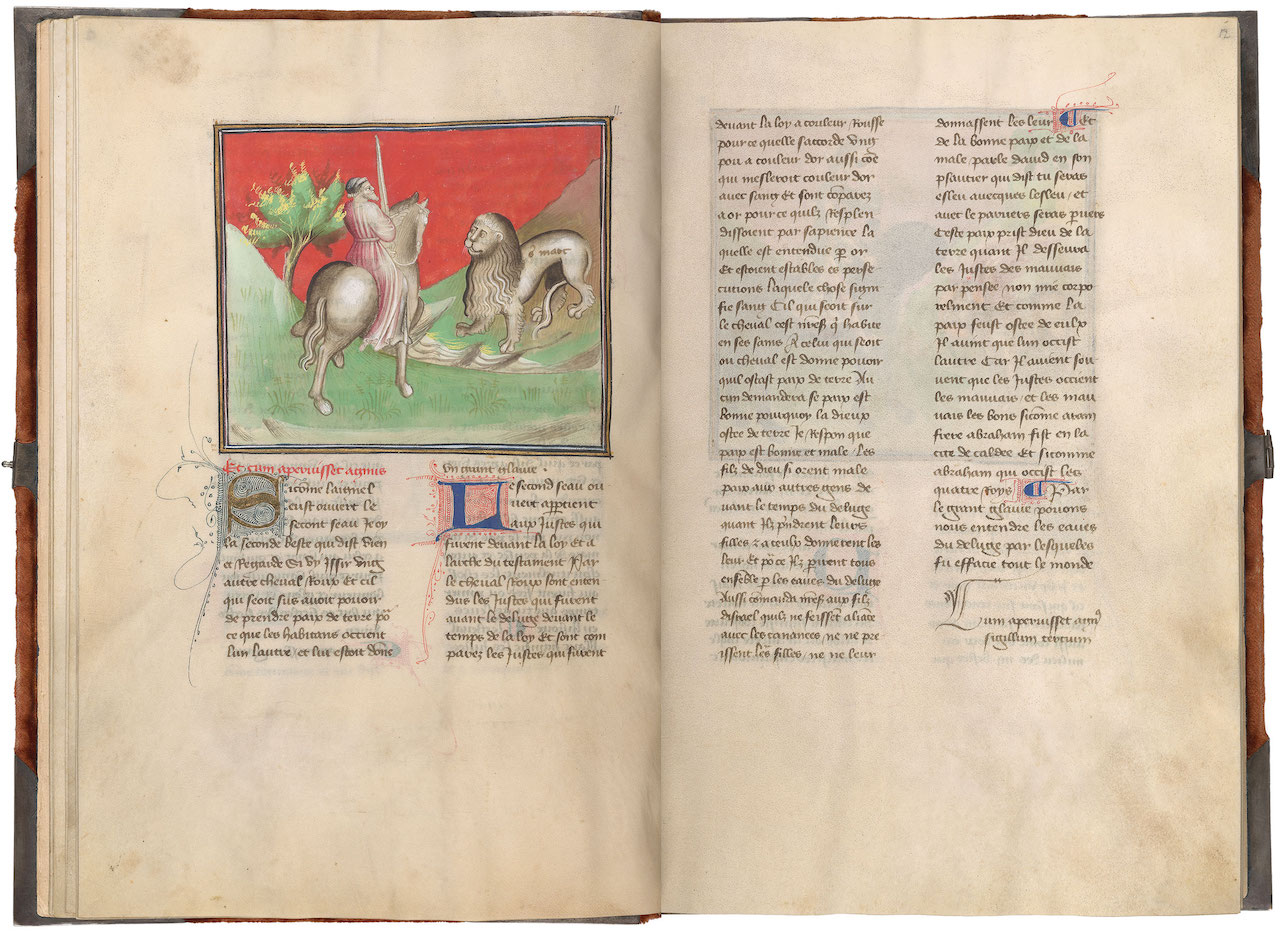 11.
S marc
Et cum aperuisset agnus
Sicome laignel
eust ouvert le
second seau Je oy
la seconde beste qui dist Vien
et Regarde Si vy Issir vng
autre cheval Roux Et cil
qui seoit sus avoit pouoir
de prendre paix de terre pō
ce que les habitans occient
lun lautre / et lui estoit dōne
Vn grant glaive .
Le second seau ou
vert appartient
aux Justes qui
furent devant la loy et a
larche du testament Par
le cheval Roux sont enten
dus les Justes qui furent
avant le deluge devant le
temps de la loy Et sont com
parez les Justes qui furent
12
devant la loy a couleur Rousse
pour ce quelle saccorde Vng
pou a couleur dor aussi cōe
qui mesleroit couleur dor
avec sang Et sont cōparez
a or pour ce quilz Resplen
dissoient par sapience la
quelle est entendue p or
Et estoient estables es perse
cutions laquele chose signi
fie sang Cil qui seoit sur
le cheval cest n̄rē s̄r q̄ habite
en ses sains A celui qui seoit
ou cheval est donne pouoir
quil ostast paix de terre Au
cun demandera se paix est
bonne pourquoy la dieux
ostee de terre Je Respon que
paix est bonne et male / Les
filz de dieu si orent male
paix aux autres gens de
vant le temps du deluge
quant Ilz prindrent leurs
filles & a eulx donnerent les
leur Et pō ce Ilz perirent tous
ensēble p les eaues du deluge
Aussi cōmanda n̄rē s̄r aux filz
disrael quilz ne feissent aliāce
avec les cananees / ne ne pre
issent les filles / ne ne leur
donnassent les leur Et
de la bonne paix et de la
male / parle david en son
psaultier qui dist tu seras
esleu avecques lesleu / et
avec le pervers seras pervers
Ceste paix prist dieu de la
terre quant Il dessevra
les Justes des mauvais
par pensee non mie corpo
relment Et comme la
paix feust ostee de eulx
Il avint que lun occist
lautre Car Il avient sou
vent que les Justes occient
les mauvais / et les mau
vais les bons sicōme aram
frere abraham fist en la
cite de caldee Et sicomme
abraham qui occist les
quatre Roys Par
le grant glaive pouons
nous entendre les eaues
du deluge par lesqueles
fu efface tout le monde
Cum aperuisset agn9
sigillum tercium